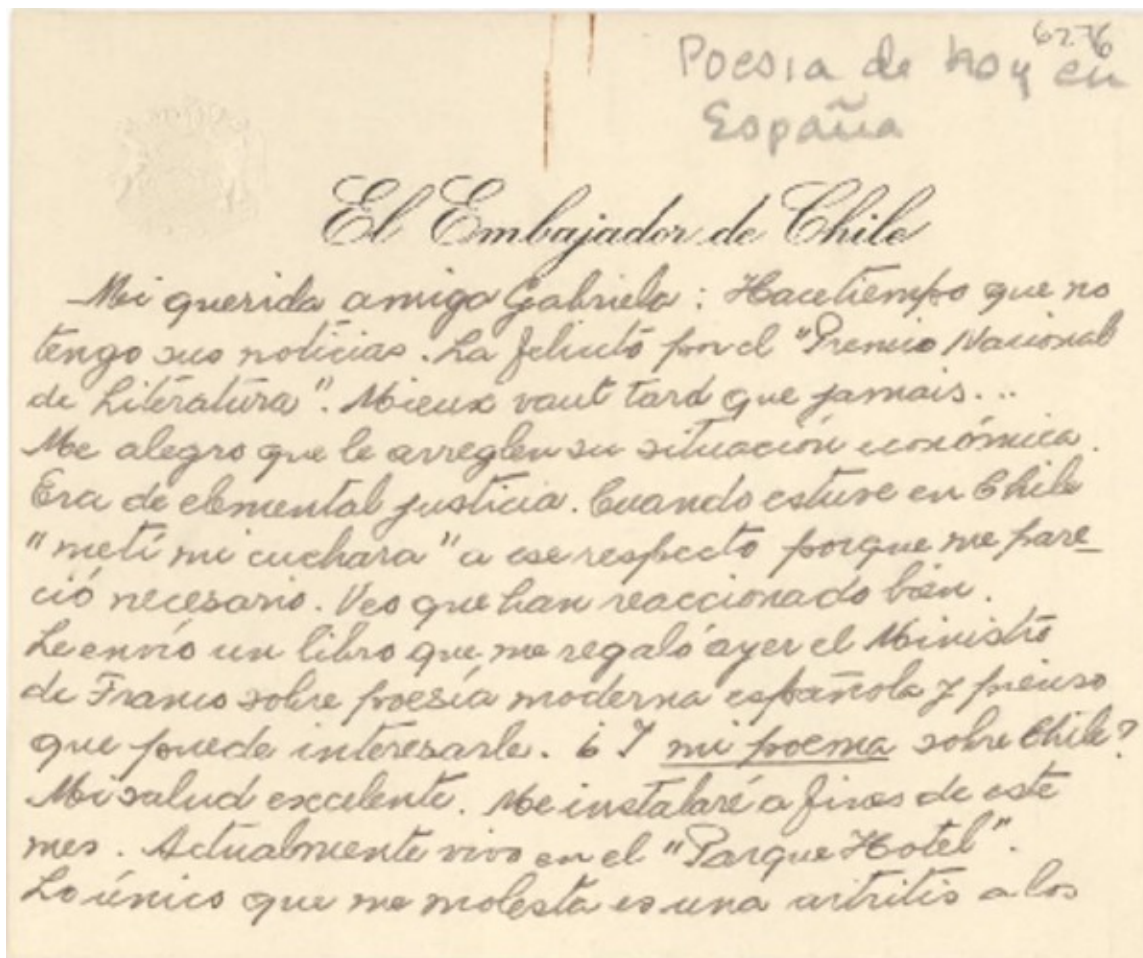 6276
Poesia de hoy en
España
El Embajador de Chile
Mi querida amiga Gabriela: Hace tiempo que no
tengo sus noticias. La felicito por el "Premio Nacional
de Literatura". Mieux vaut tard que jamais...
Me alegro que le arreglen su situación económica.
Era de elemental justicia. Cuando estuve en Chile
"metí mi cuchara" a ese respecto porque me pare-
ció necesario. Veo que han reaccionado bien.
Le envío un libro que me regaló ayer el Ministro
de Franco sobre poesía moderna española y pienso
que puede interesarle. ¿Y mi poema sobre Chile?
Mi salud excelente. Me instalaré a fines de este
mes. Actualmente vivo en el "Parque Hotel".
Lo único que me molesta es una artritis a los